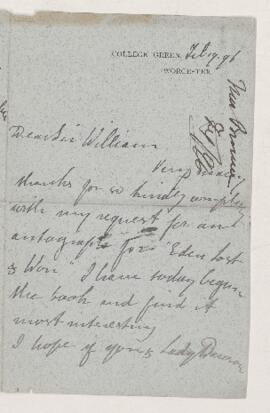 COLLEGE GREEN, Feb 19. 96
WORCESTER.
Dear Sir William
Very many
thanks for so kindly complying
with my request for an
autograph for "Eden lost
& Won" I have today begun
the book and find it
most interesting
I hope if you & Lady Dawson